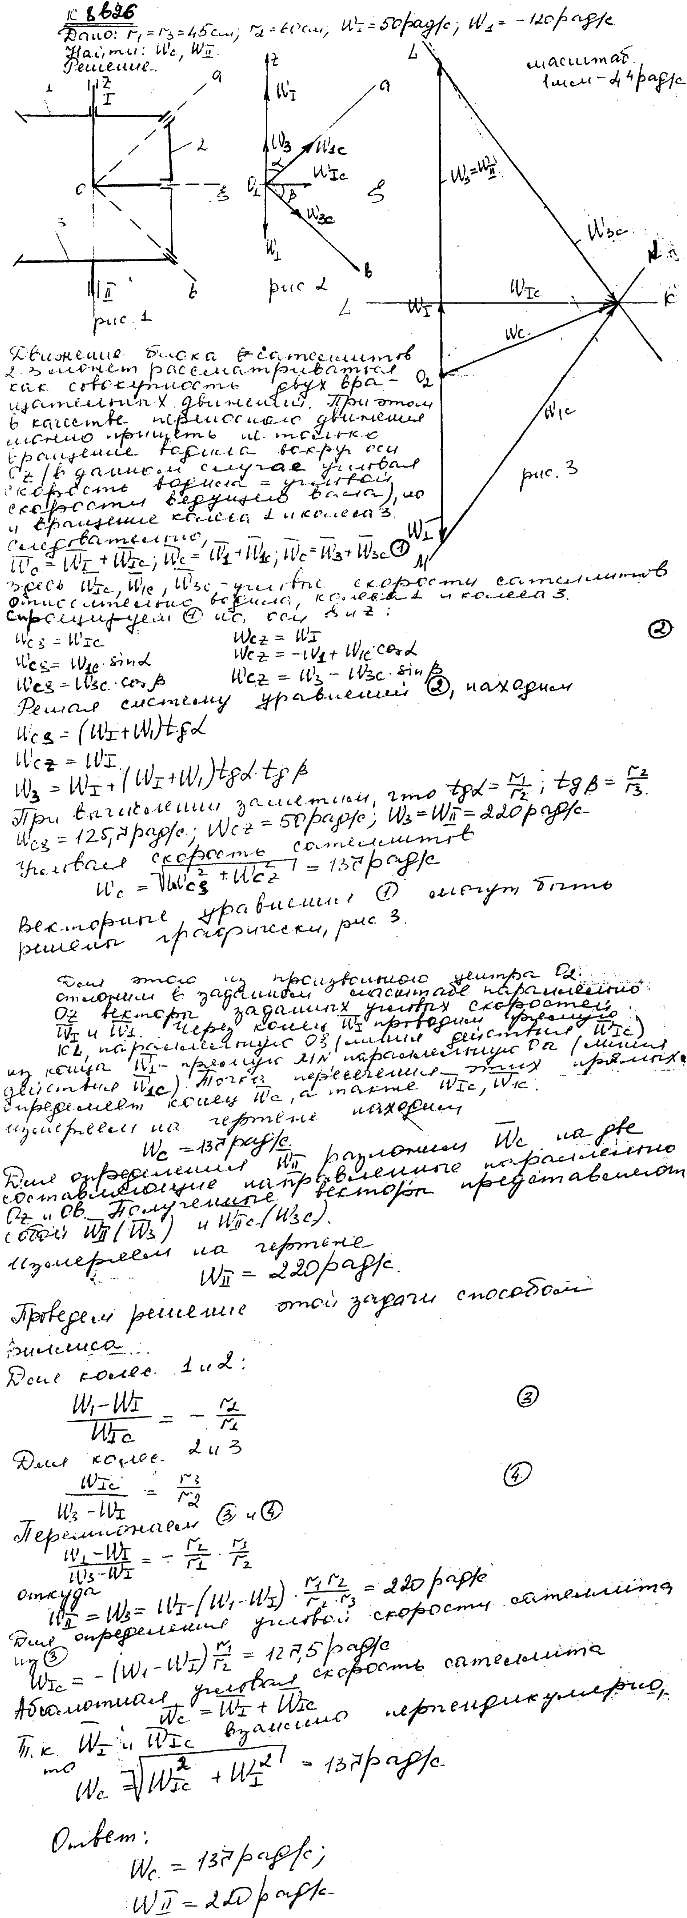 К 8626
Дано: r₁=r₃=45см; r₂=60см, W_I=50рад/с; W₁=-120рад/с
Найти: Wc, W_II.
Решение.
1
Z
I
a
2
O
ξ
3
II
b
рис. 1
Z
W_I
a
W₃
W₁c
α
W_Ic
O₁
β
ξ
W₃c
W₁
b
рис 2
масштаб
1мм-4,4рад/с
L
W₃=W_II
W₃c
N
W_Ic
L
W_I
K
Wc
O₂
W₁c
рис. 3
W₁
M
Движение блока сателлитов
2-3 может рассматриваться
как совокупность двух вра-
щательных движений. При этом
в качестве переносного движения
можно принять не только
вращение водила вокруг оси
Oz (в данном случае угловая
скорость водила = угловой
скорости ведущего вала), но
и вращение колеса 1 и колеса 3.
Следовательно,
W̄c=W̄_I+W̄_Ic; W̄c=W̄₁+W̄₁c; W̄c=W̄₃+W̄₃c ①
здесь W̄_Ic, W̄₁c, W̄₃c - угловые скорости сателлитов
относительно водила, колеса 1 и колеса 3.
Спроецируем ① на оси ξ и z:
Wcξ=W_Ic Wcz=W_I ②
Wcξ=W₁c·sinα Wcz=-W₁+W₁c·cosα
Wcξ=W₃c·cosβ Wcz=W₃-W₃c·sinβ
Решая систему уравнений ②, находим
Wcξ=(W_I+W₁)tgα
Wcz=W_I
W₃=W_I+(W_I+W₁)tgα·tgβ
При вычислении заметим, что tgα=r₁/r₂; tgβ=r₂/r₃.
Wcξ=125,7рад/с; Wcz=50рад/с; W₃=W_II=220рад/с
Угловая скорость сателлитов
Wc=√(Wcξ²+Wcz²)=137рад/с
Векторные уравнения ① могут быть
решены графически, рис 3.
Для этого из произвольного центра O₂
отложим в заданном масштабе параллельно
Oz векторы заданных угловых скоростей
W̄_I и W̄₁. Через конец W̄_I проводим прямую
KL, параллельную Oξ (линия действия W̄_Ic)
из конца W̄₁- прямую MN параллельную Oa (линия
действия W̄₁c). Точка пересечения этих прямых
определяет конец W̄c, а также W̄_Ic, W̄₁c.
Измеряем на чертеже находим
Wc=137рад/с.
Для определения W̄_II разложим W̄c на две
составляющие направленные параллельно
Oz и Ob. Полученные векторы представляют
собой W̄_II(W̄₃) и W̄_IIc(W̄₃c).
Измеряем на чертеже
W_II=220рад/с.
Проведем решение этой задачи способом
Виллиса
Для колес 1 и 2:
(W₁-W_I)/W_Ic = -r₂/r₁ ③
Для колес 2 и 3
W_Ic/(W₃-W_I) = r₃/r₂ ④
Перемножаем ③ и ④
(W₁-W_I)/(W₃-W_I) = -r₂/r₁·r₃/r₂
откуда
W_II=W₃=W_I-(W₁-W_I)·r₁r₂/r₂·r₃=220рад/с
Для определения угловой скорости сателлита
из ③
W_Ic=-(W₁-W_I)r₁/r₂=127,5рад/с
Абсолютная угловая скорость сателлита
W̄c=W̄_I+W̄_Ic
Т.к. W̄_I и W̄_Ic взаимно перпендикулярно,
то
Wc=√(W_Ic²+W_I²)=137рад/с.
Ответ:
Wc=137рад/с;
W_II=220рад/с.